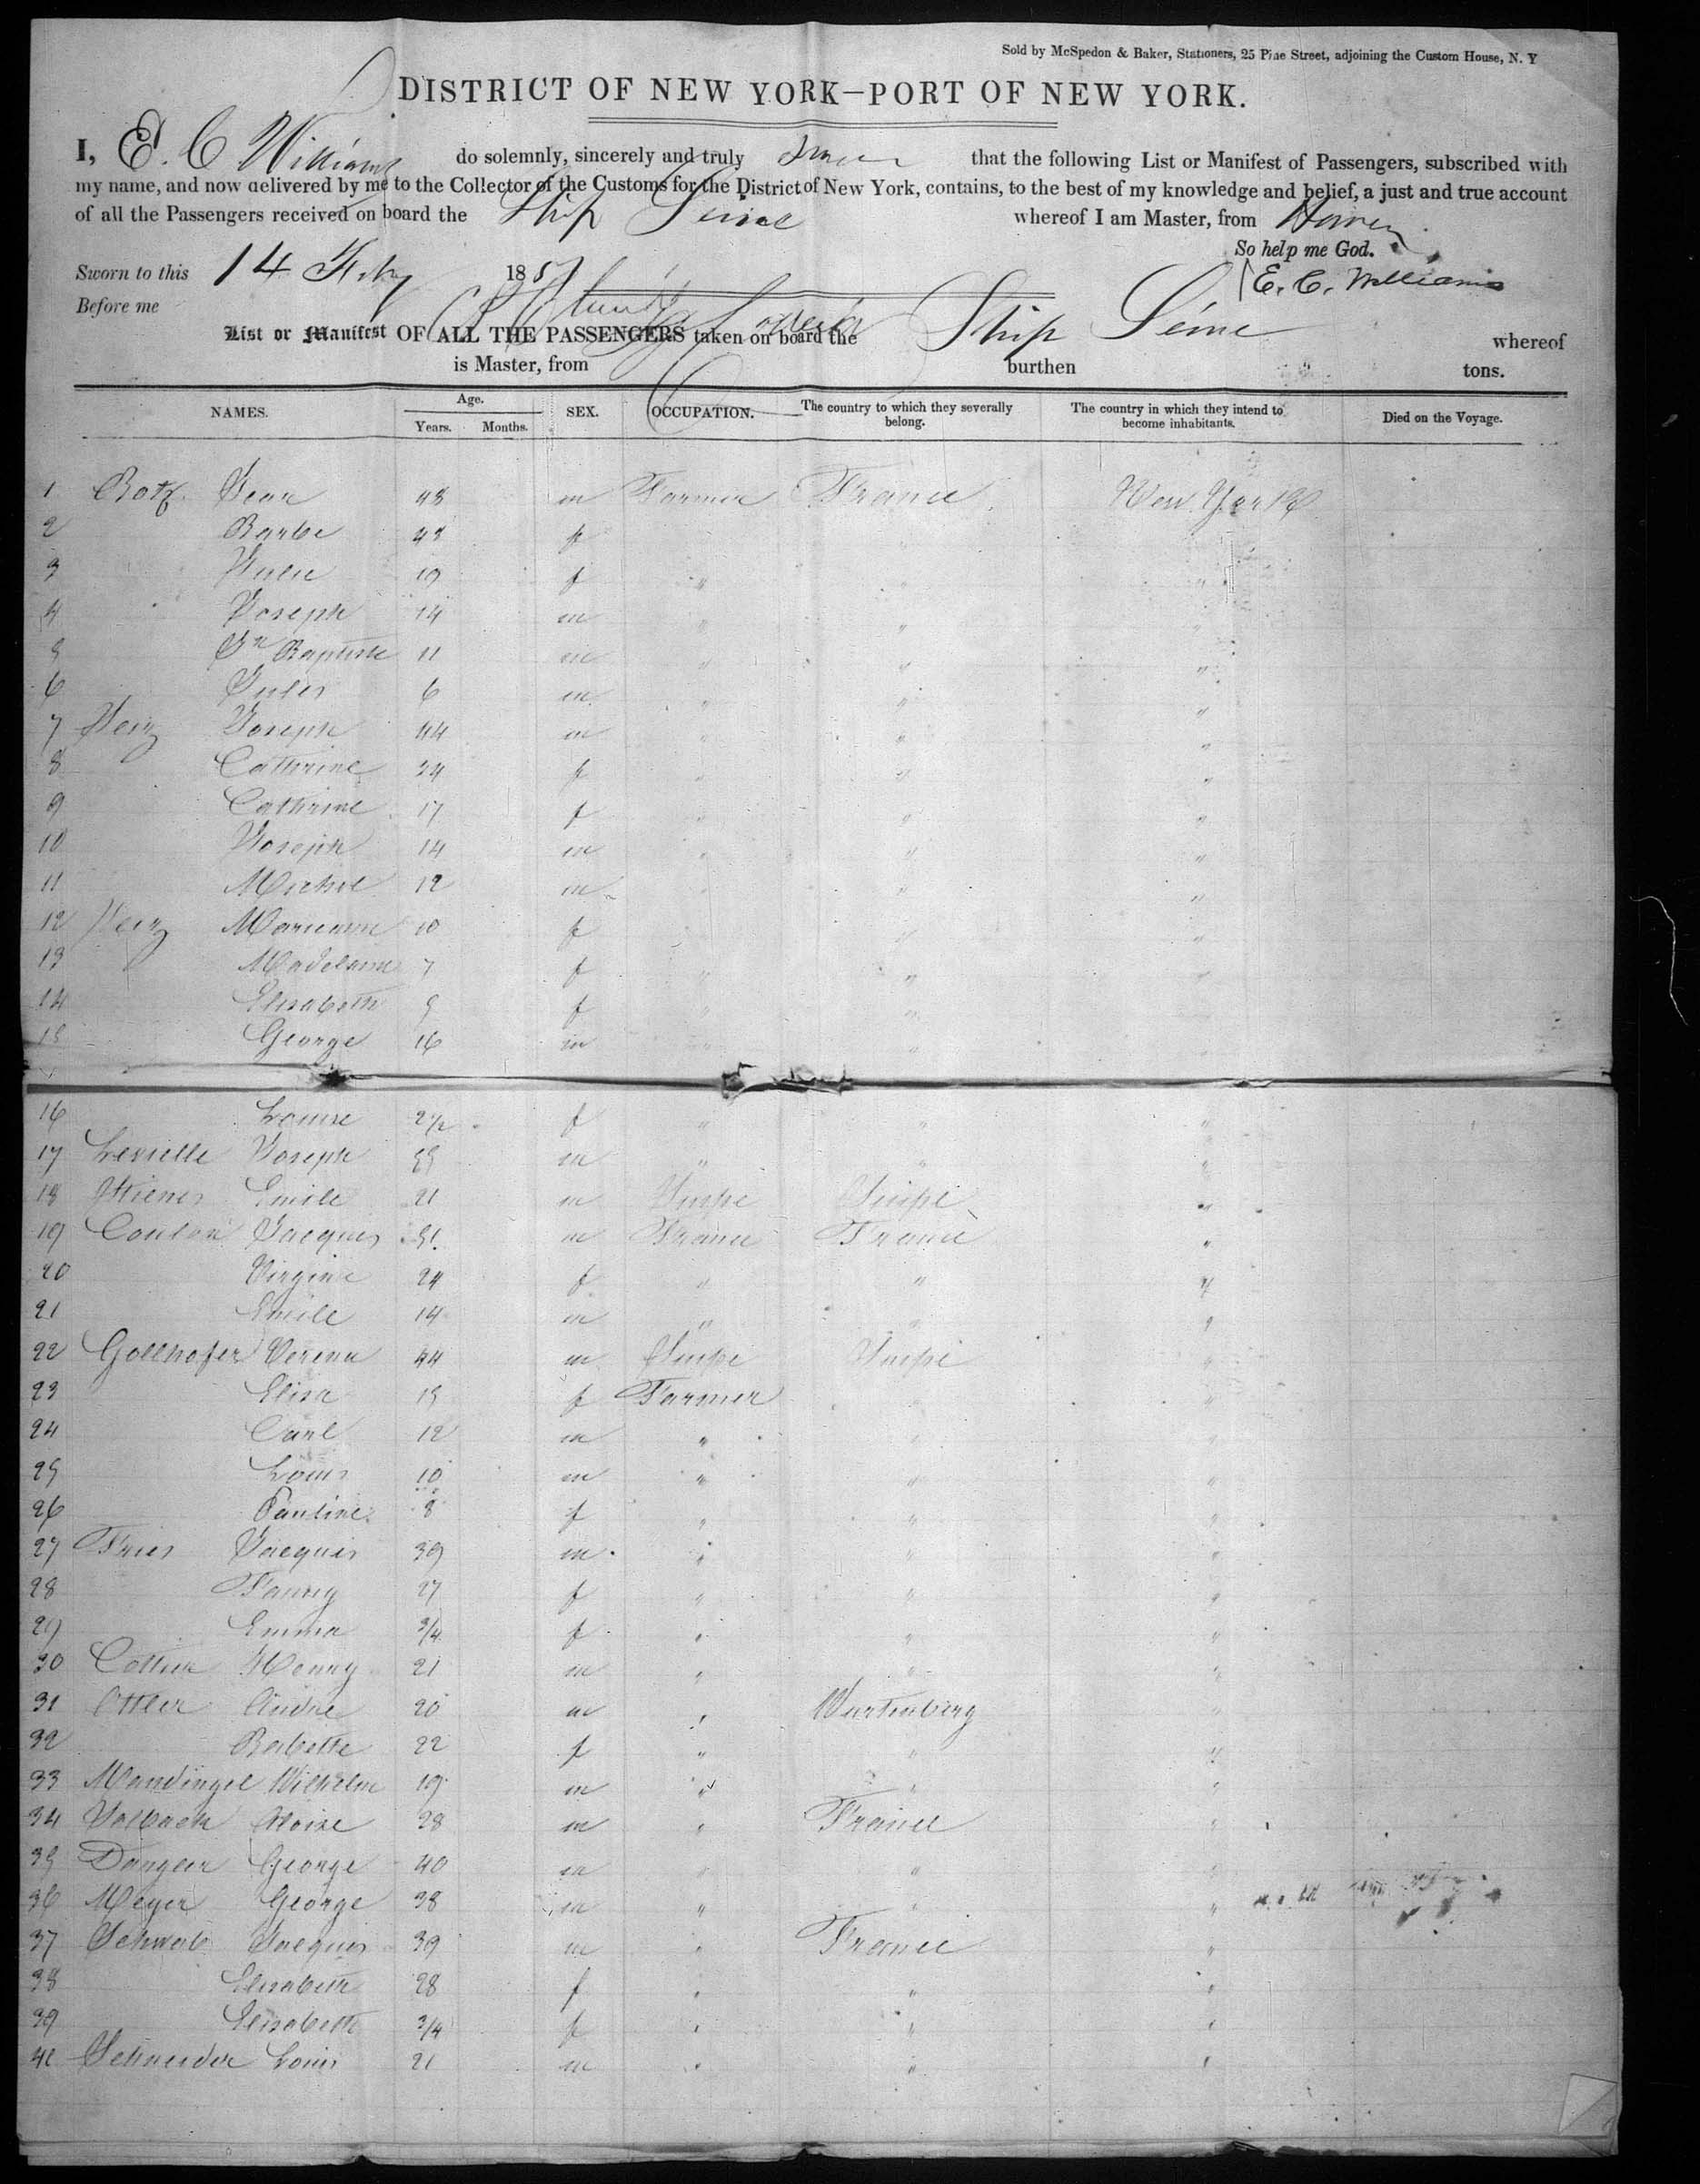 Sold by McSpedon & Baker, Stationers, 25 Pine Street, adjoining the Custom House, N. Y
DISTRICT OF NEW YORK—PORT OF NEW YORK.
I, E. C Williams do solemnly, sincerely and truly swear that the following List or Manifest of Passengers, subscribed with
my name, and now delivered by me to the Collector of the Customs for the District of New York, contains, to the best of my knowledge and belief, a just and true account
of all the Passengers received on board the Ship Seine whereof I am Master, from Havre
So help me God.
Sworn to this 14 Feby 185 E. C. Williams
Before me
List or Manifest OF ALL THE PASSENGERS taken on board the Ship Seine whereof
is Master, from burthen tons.
NAMES. Age. Years. Months. SEX. OCCUPATION. The country to which they severally belong. The country in which they intend to become inhabitants. Died on the Voyage.
1 Jean 48 m Farmer France New York
2 Barbe 48 f
3 Julie 19 f " " "
4 Joseph 14 m " " "
5 Jn Baptiste 11 m " " "
6 Jules 6 m " " "
7 Joseph 44 m " " "
8 Cathrine 34 f " " "
9 Cathrine 17 f " " "
10 Joseph 14 m " " "
11 Michel 12 m " " "
12 Marianne 10 f " " "
13 Madelaine 7 f " " "
14 Elisabeth 5 f " " "
15 George 16 m " "
16 Louise 2 1/2 f " " "
17 Joseph 55 m " " "
18 Emile 21 m Suisse Suisse "
19 Coulon Jacques 51 m France France "
20 Virginie 24 f " " "
21 Emile 14 m " " "
22 Gollhofer Verena 44 m Suisse Suisse "
23 Elisa 15 f Farmer " "
24 Carl 12 m " " "
25 Louis 10 m " " "
26 Pauline 8 f " " "
27 Fries Jacques 39 m " " "
28 Fanny 27 f " " "
29 Emma 3/4 f " " "
30 Henry 21 m " " "
31 Ottler Andre 20 m " Wurtenberg "
32 Babette 22 f " " "
33 Mandingel Wilhelm 19 m " " "
34 Aloise 28 m " France "
35 George 40 m " " "
36 Meyer George 38 m " " "
37 Schwab Jacques 39 m " France "
38 Elisabeth 28 f " " "
39 Elisabeth 3/4 f " " "
40 Schneider Louis 21 m " " "